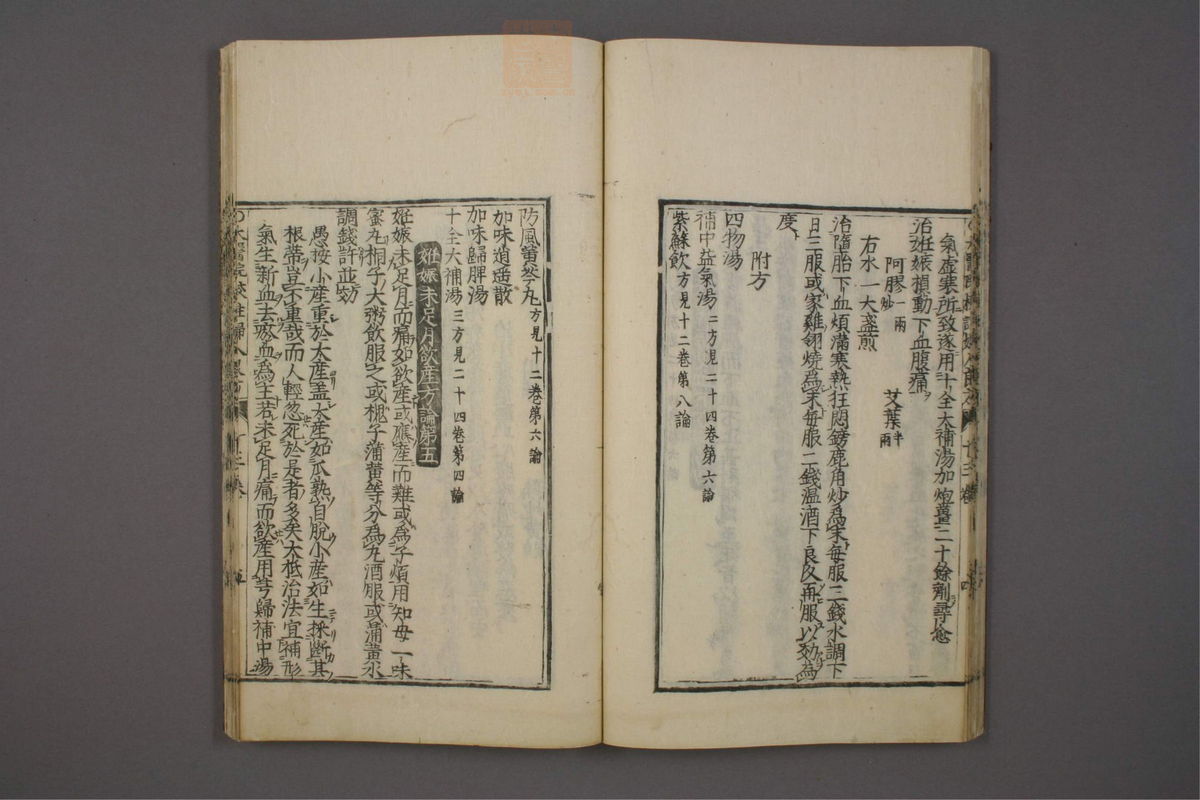 氣虛寒所致遂用十全大補湯加炮薑二十餘劑尋愈
治姙娠損動下血腹痛
阿膠一兩炒 艾葉半兩
右水一大盞煎
治墮胎下血煩滿寒熱狂悶鎊鹿角炒爲末每服三錢水調下
日三服或家雞翎燒爲末每服二錢溫酒下良久再服以効爲
度
附方
四物湯
補中益氣湯二方見二十四卷第六論
紫蘇飮方見十二卷第八論
防風黃芩丸方見十二卷第六論
加味逍遥散
加味歸脾湯
十全大補湯三方見二十四卷第四論
姙娠未足月飮產方論第五
姙娠未足月而痛如欲產或應產而難或爲子煩用知母一味
蜜丸梧子大粥飮服之或槐子蒲黃等分爲丸酒服或蒲黃水
調錢許並効
愚按小產重於大產盖大產如瓜熟自脫小產如生採斷其
根蒂豈不重哉而人輕忽死於是者多矣大抵治法宜補形
氣生新血去瘀血爲主若未足月痛而欲產用芎歸補中湯